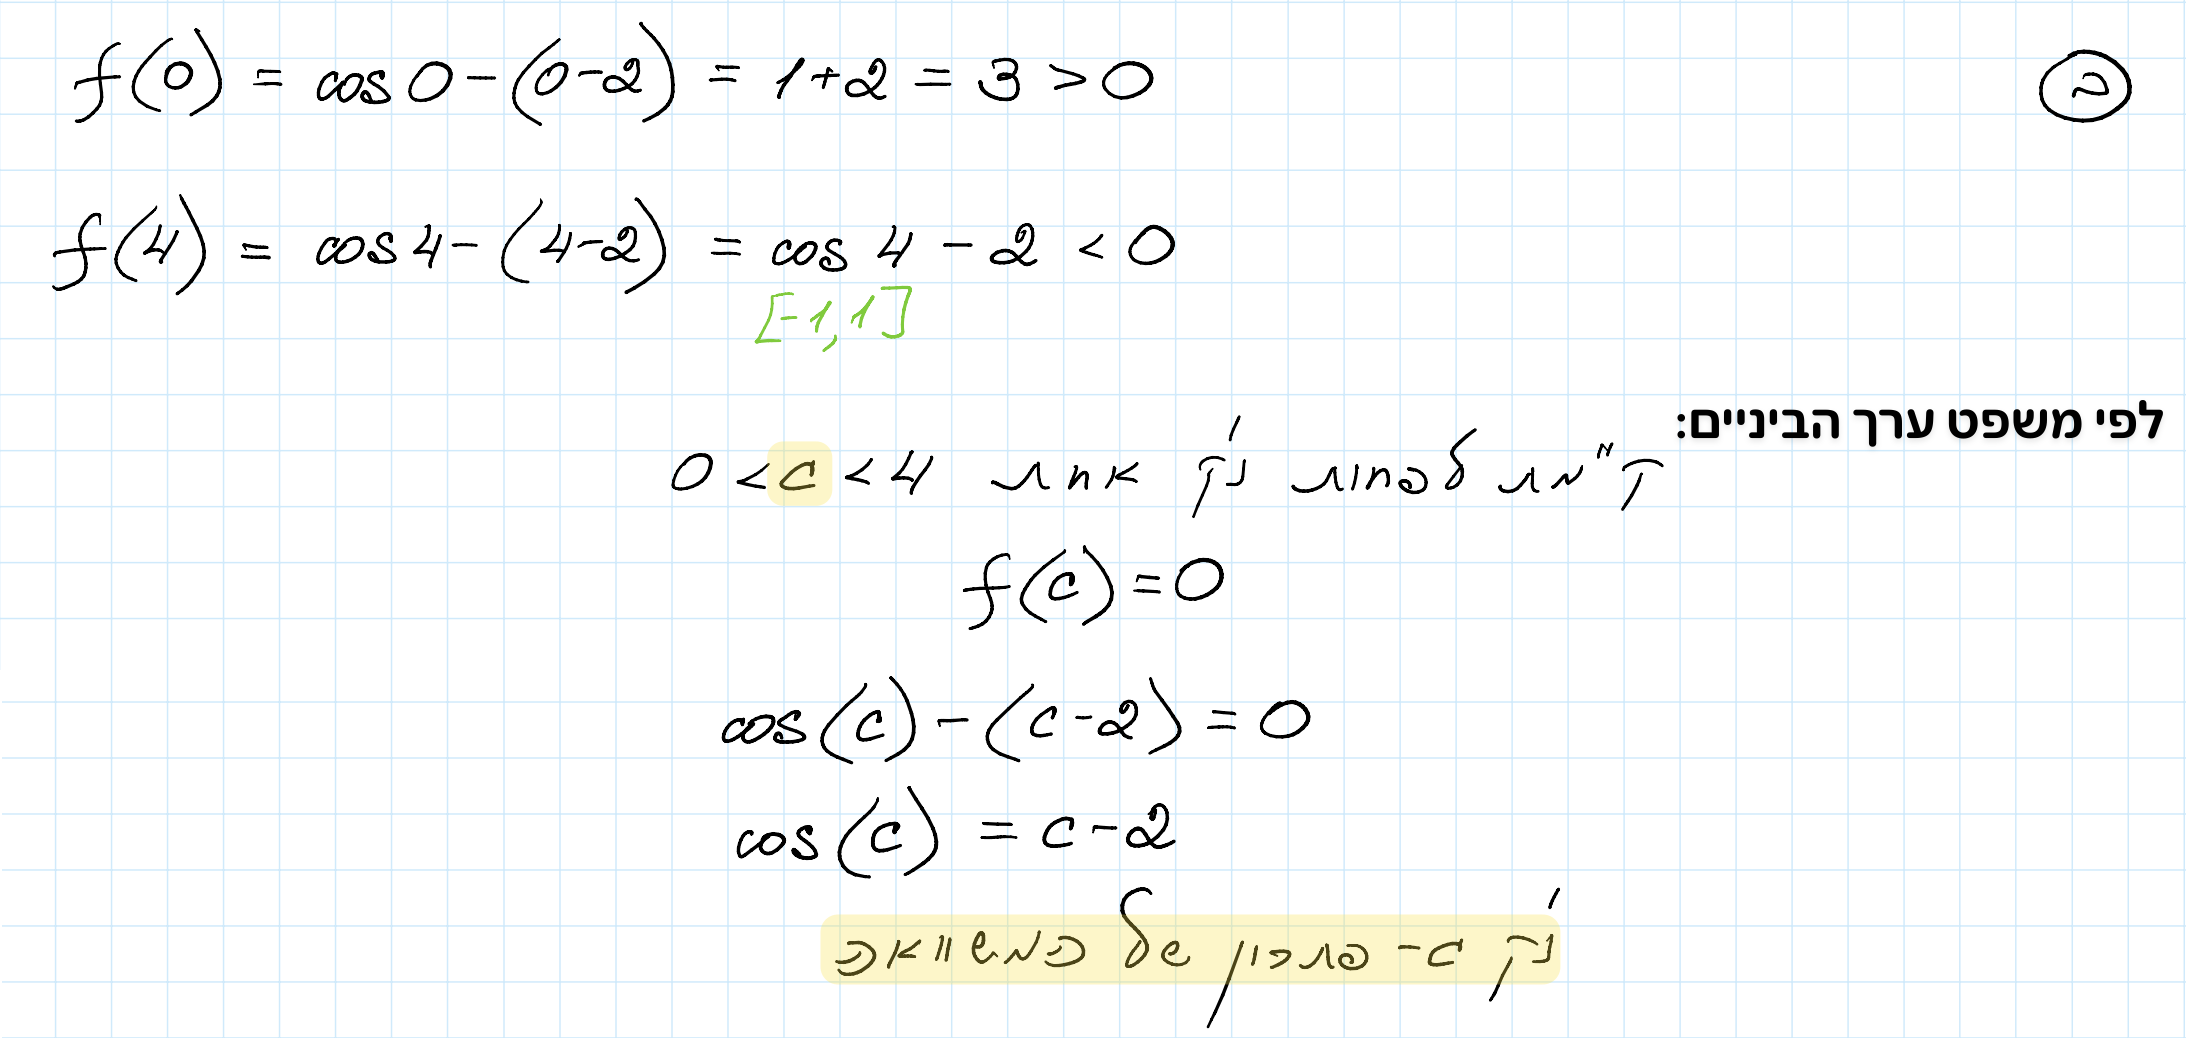 ב
f(0) = cos 0 - (0-2) = 1+2 = 3 > 0
f(4) = cos 4 - (4-2) = cos 4 - 2 < 0
[-1,1]
לפי משפט ערך הביניים:
קיימת לפחות נק' אחת 0 < c < 4
f(c) = 0
cos(c) - (c-2) = 0
cos(c) = c-2
נק' c - פתרון של המשוואה